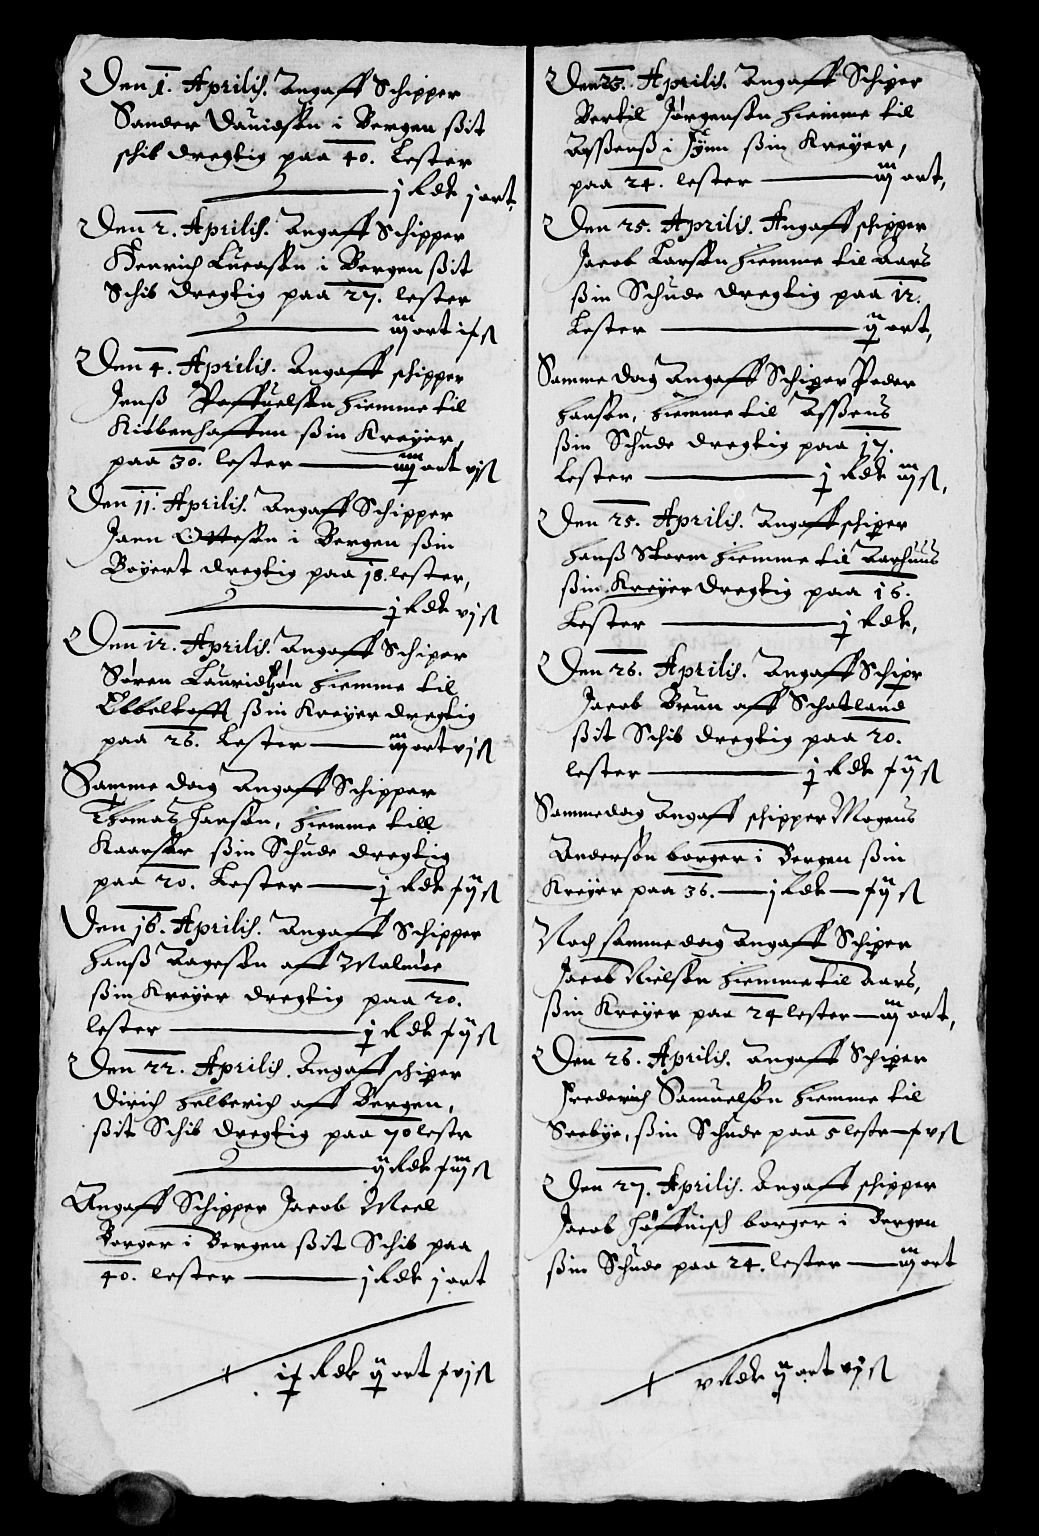 Den 1. Aprilis. Angaff Schipper
Sander Dauidsøn i Bergen ßit
schib dregtig paa 40. Lester
j Rdr j ort,
Den 2. Aprilis. Angaff Schipper
Henrich Lucasøn i Bergen ßit
Schib dregtig paa 27. lester
iij ort
Den 4. Aprilis. Angaff schipper
Jenß Poffuelsøn hiemme til
Kiøbenhaffuen ßin Kreyer,
paa 30. lester iiij ort vj ß
Den 11. Aprilis. Angaff Schipper
Jaen Ottesøn i Bergen ßin
Boyert dregtig paa 18. lester,
j Rdr vj ß
Den 12. Aprilis. Angaff Schiper
Søren Lauridtzøn hiemme til
Ebbeltofft ßin Kreyer dregtig
paa 26. Lester iij ort vj ß
Samme dag Angaff Schipper
Thomas Jansøn, hiemme till
Kaarsør ßin Schude dregtig
paa 20. Lester j Rdr xij ß
Den 16. Aprilis. Angaff Schipper
Hanß Aagesøn aff Malmøe
ßin Kreyer dregtig paa 20.
lester j Rdr xij ß
Den 22. Aprilis. Angaff schiper
Dirich Helberich aff Bergen,
ßit Schib dregtig paa 70 lestr
ij Rdr xiij ß
Angaff Schipper Jacob Meel
Borger i Bergen ßit Schib paa
40. lester j Rdr j ort
ix Rdr ij ort xvj ß
Den 23. Aprilis. Angaff Schiper
Bertil Jørgensøn hiemme til
Assenß i Fyen ßin Kreyer,
paa 24. lester iij ort,
Den 25. Aprilis. Angaff schipper
Jacob Larsøn hiemme til Aars
ßin Schude dregtig paa 12.
Lester ij ort,
Samme dag Angaff Schiper Peder
Hansøn, hiemme til Assens
ßin Schude dregtig paa 17.
Lester j Rdr iij ß,
Den 25. Aprilis. Angaff schiper
Hanß Storm hiemme til Aarhuus
ßin Kreyer dregtig paa 16.
Lester j Rdr,
Den 26. Aprilis. Angaff Schipr
Jacob Brun aff Schotland
ßit Schib dregtig paa 20.
lester j Rdr xij ß
Samme dag Angaff schipper Mogens
Andersøn borger i Bergen ßin
Kreyer paa 36. j Rdr xij ß
Noch samme dag Angaff Schiper
Jacob Nielsøn hiemme til Aars,
ßin Kreyer paa 24 lester iij ort,
Den 26. Aprilis. Angaff Schiper
Frederich Samuelsøn hiemme til
Seebye, ßin Schude paa 5 lester xv ß
Den 27. Aprilis. Angaff schipper
Jacob borger i Bergen
ßin Schude paa 24. lester iij ort
v Rdr ij ort vij ß